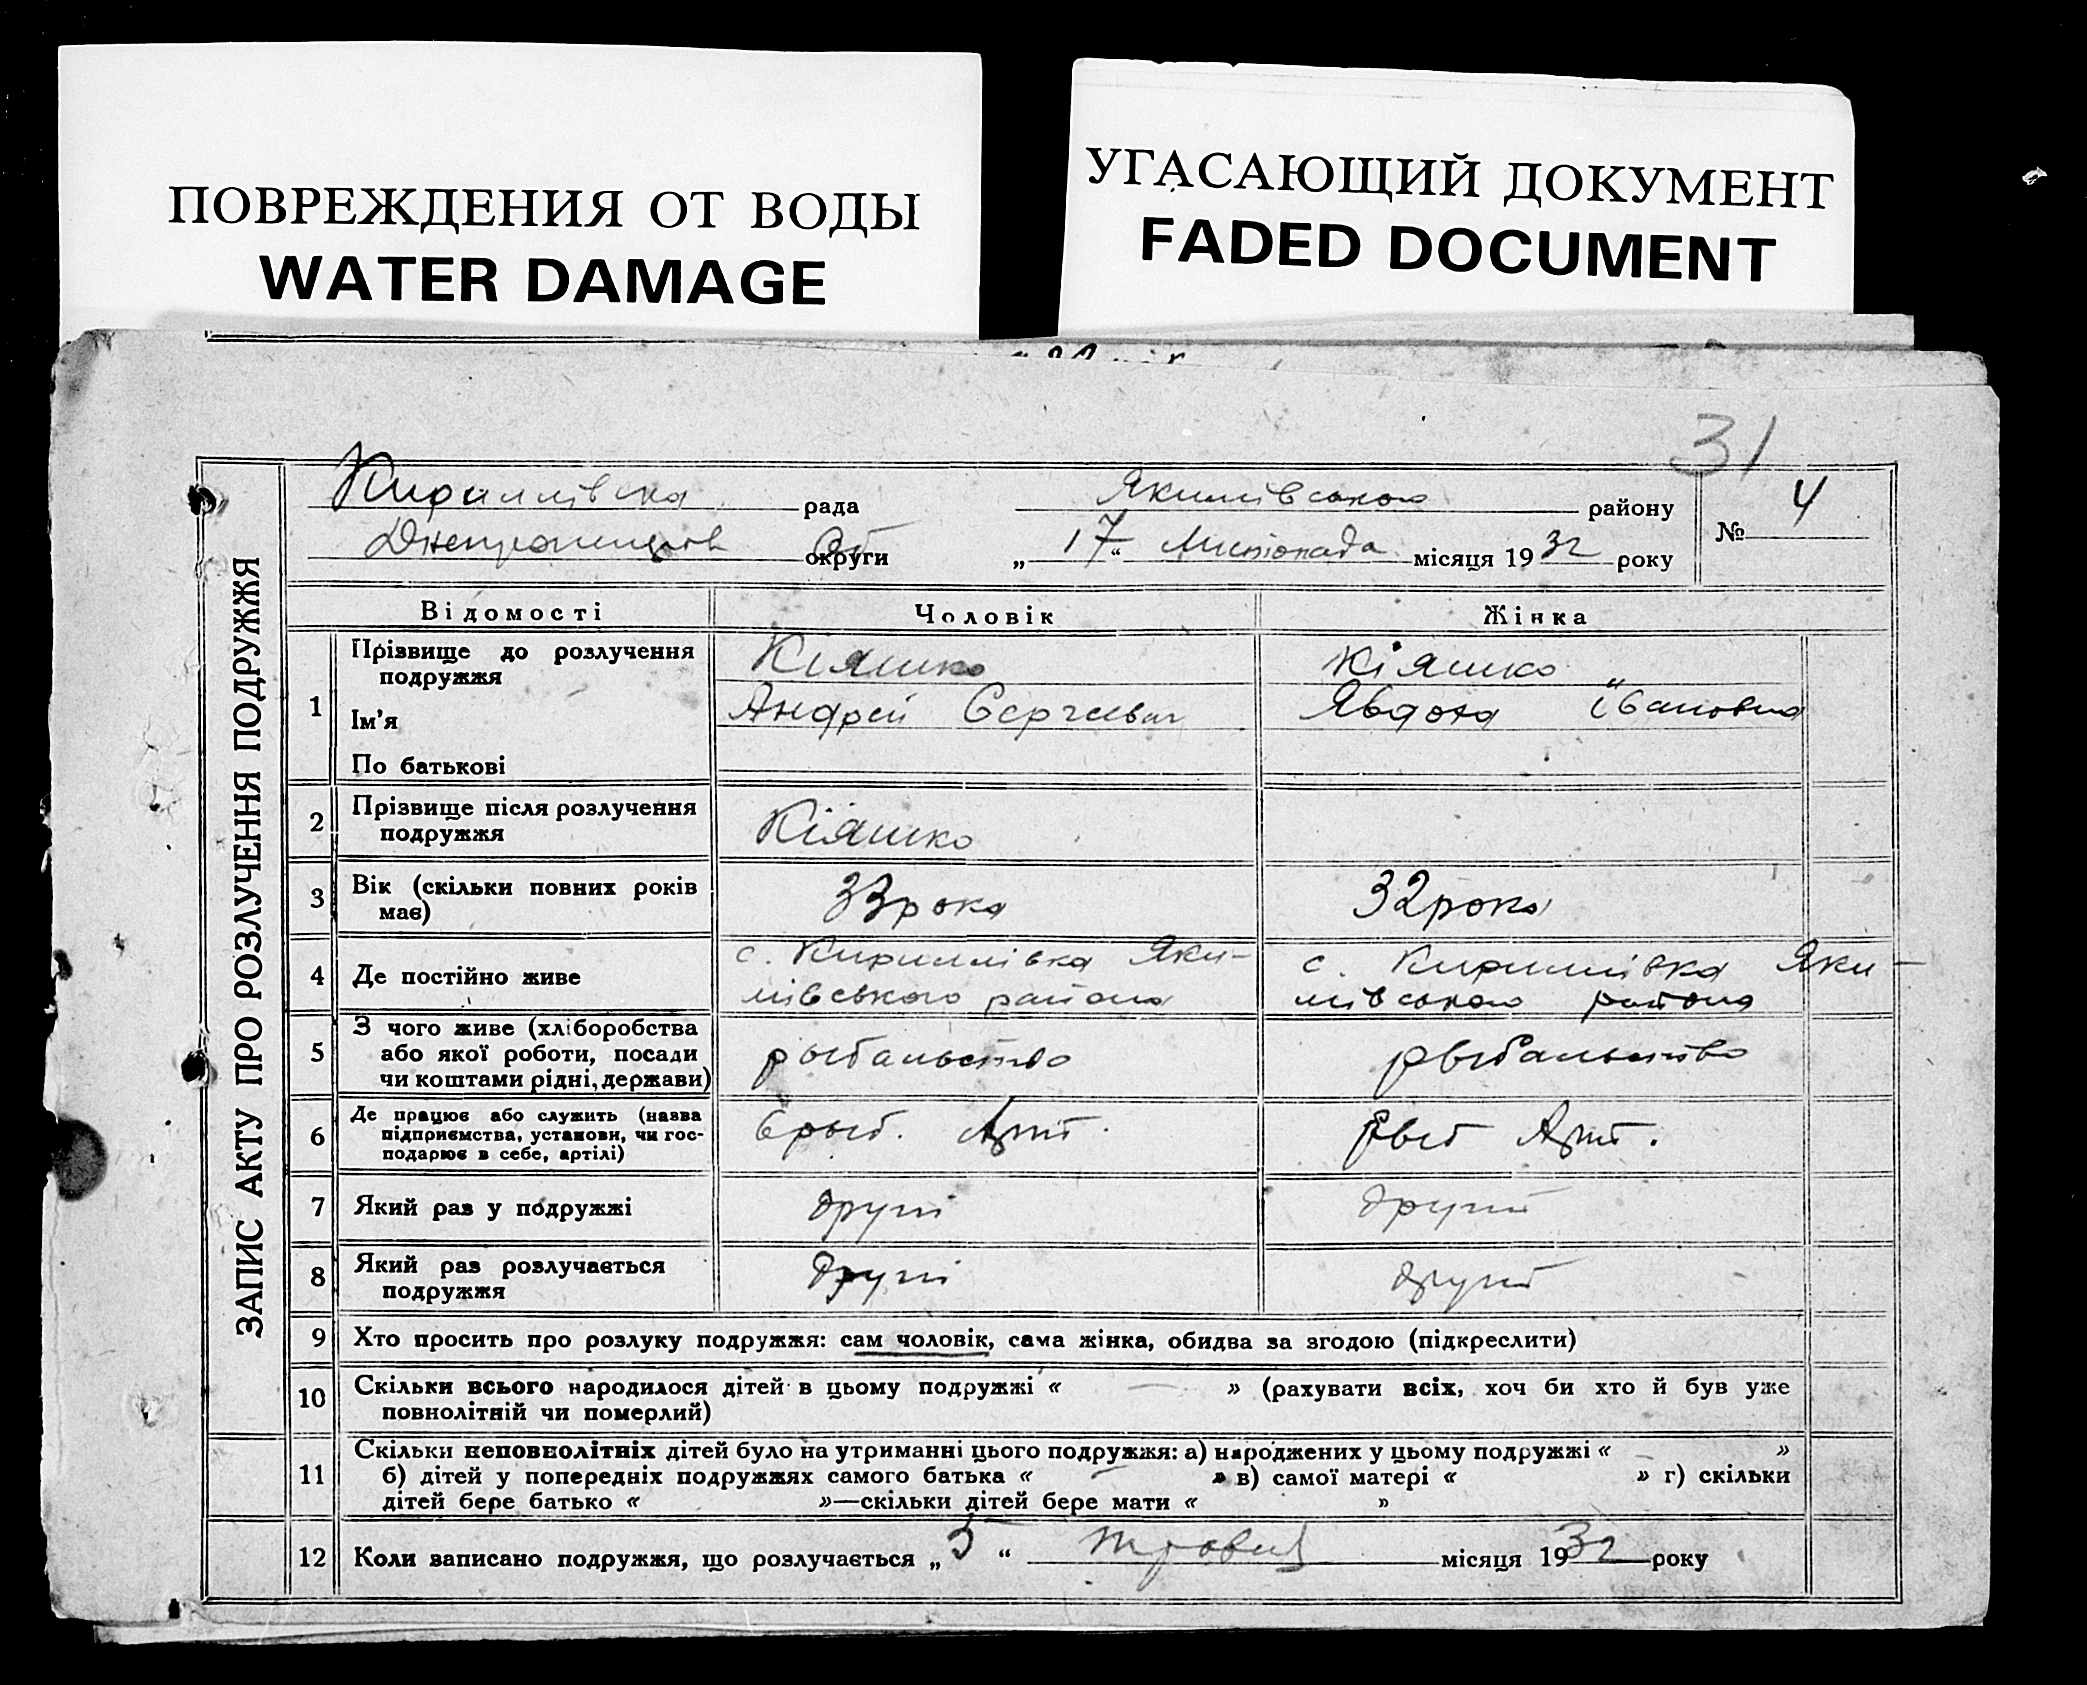 ПОВРЕЖДЕНИЯ ОТ ВОДЫ
WATER DAMAGE
УГАСАЮЩИЙ ДОКУМЕНТ
FADED DOCUMENT
31
ЗАПИС АКТУ ПРО РОЗЛУЧЕННЯ ПОДРУЖЖЯ
Кириллівська рада Якимівського району
№ 4
Днепропетров Об округи „17“ Листопада місяця 1932 року
Відомості Чоловік Жінка
1 Прізвище до розлучення подружжя Кіяшко Кіяшко
Ім'я Андрей Сергеевич Явдоха Івановна
По батькові
2 Прізвище після розлучення подружжя Кіяшко
3 Вік (скільки повних років має) 33 рока 32 рока
4 Де постійно живе с. Кириллівка Яки- с. Кириллівка Яки-
мівського района мівського района
5 З чого живе (хліборобства або якої роботи, посади чи коштами рідні, держави) рыбальство рыбальство
6 Де працює або служить (назва підприємства, установи, чи господарює в себе, артілі) рыб. Арт. рыб Арт.
7 Який раз у подружжі другі другий
8 Який раз розлучається подружжя другі другий
9 Хто просить про розлуку подружжя: сам чоловік, сама жінка, обидва за згодою (підкреслити)
10 Скільки всього народилося дітей в цьому подружжі « — » (рахувати всіх, хоч би хто й був уже
повнолітній чи померлий)
11 Скільки неповнолітніх дітей було на утриманні цього подружжя: а) народжених у цьому подружжі « — »
б) дітей у попередніх подружжях самого батька « — » в) самої матері « » г) скільки
дітей бере батько « »—скільки дітей бере мати « »
12 Коли записано подружжя, що розлучається „5“ травня місяця 1932 року